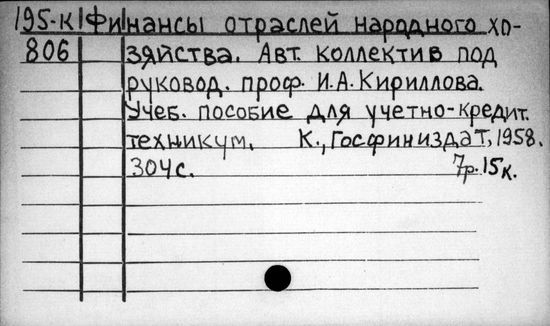 195-к Финансы отраслей народного хо-
806 зяйства. Авт. коллектив под
руковод. проф. И.А.Кириллова.
Учеб. пособие для учетно-кредит.
техникум. К., Госфиниздат, 1958.
304с. 7р.15к.